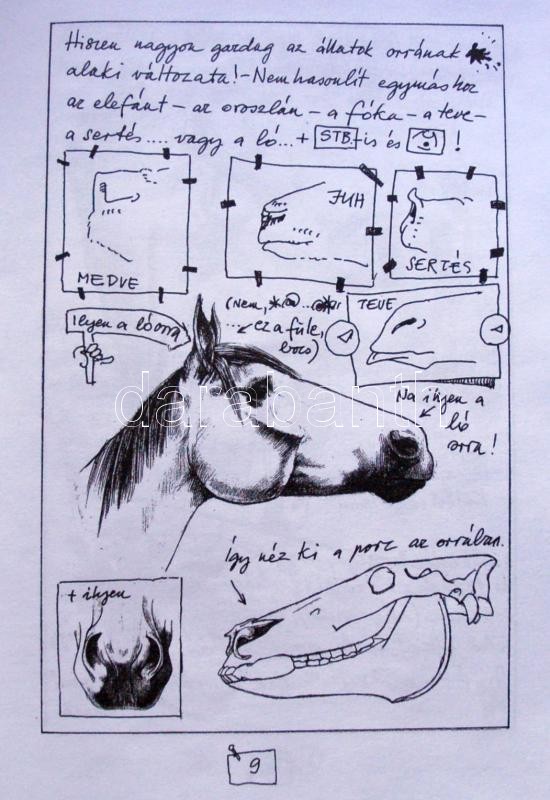 Hiszen nagyon gazdag az állatok orrának
alaki változata! - Nem hasonlít egymáshoz
az elefánt - az oroszlán - a fóka - a teve -
a sertés.... vagy a ló... + STB. -is és !
MEDVE
JUH
SERTÉS
Ilyen a ló orra
(Nem,
... ez a füle,
bocs)
TEVE
Na ilyen a
ló
orra!
Így néz ki a porc az orrában.
+ ilyen
darabanth
9